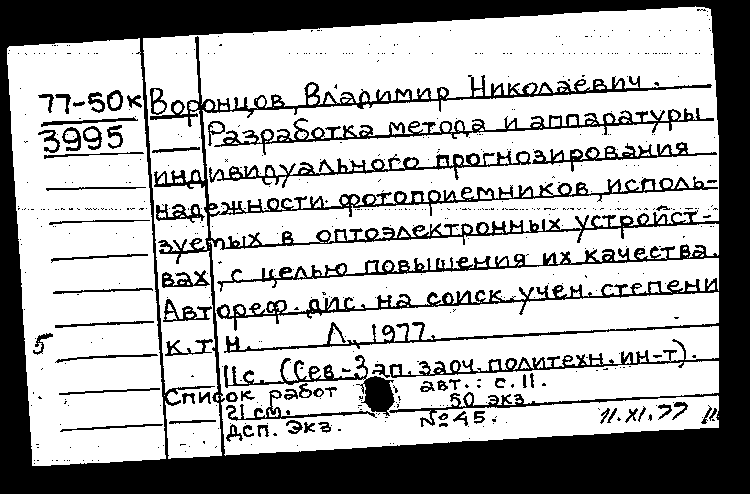 77-50к Воронцов, Владимир Николаевич.
3995 Разработка метода и аппаратуры
индивидуального прогнозирования
надежности фотоприемников, исполь-
зуемых в оптоэлектронных устройст-
вах, с целью повышения их качества.
Автореф. дис. на соиск. учен. степени
5 к.т.н. Л., 1977.
11с. (Сев.-Зап. заоч. политехн. ин-т).
Список работ авт.: с.11.
21 см. 50 экз.
ДСП. Экз. №45. 11.XI.77